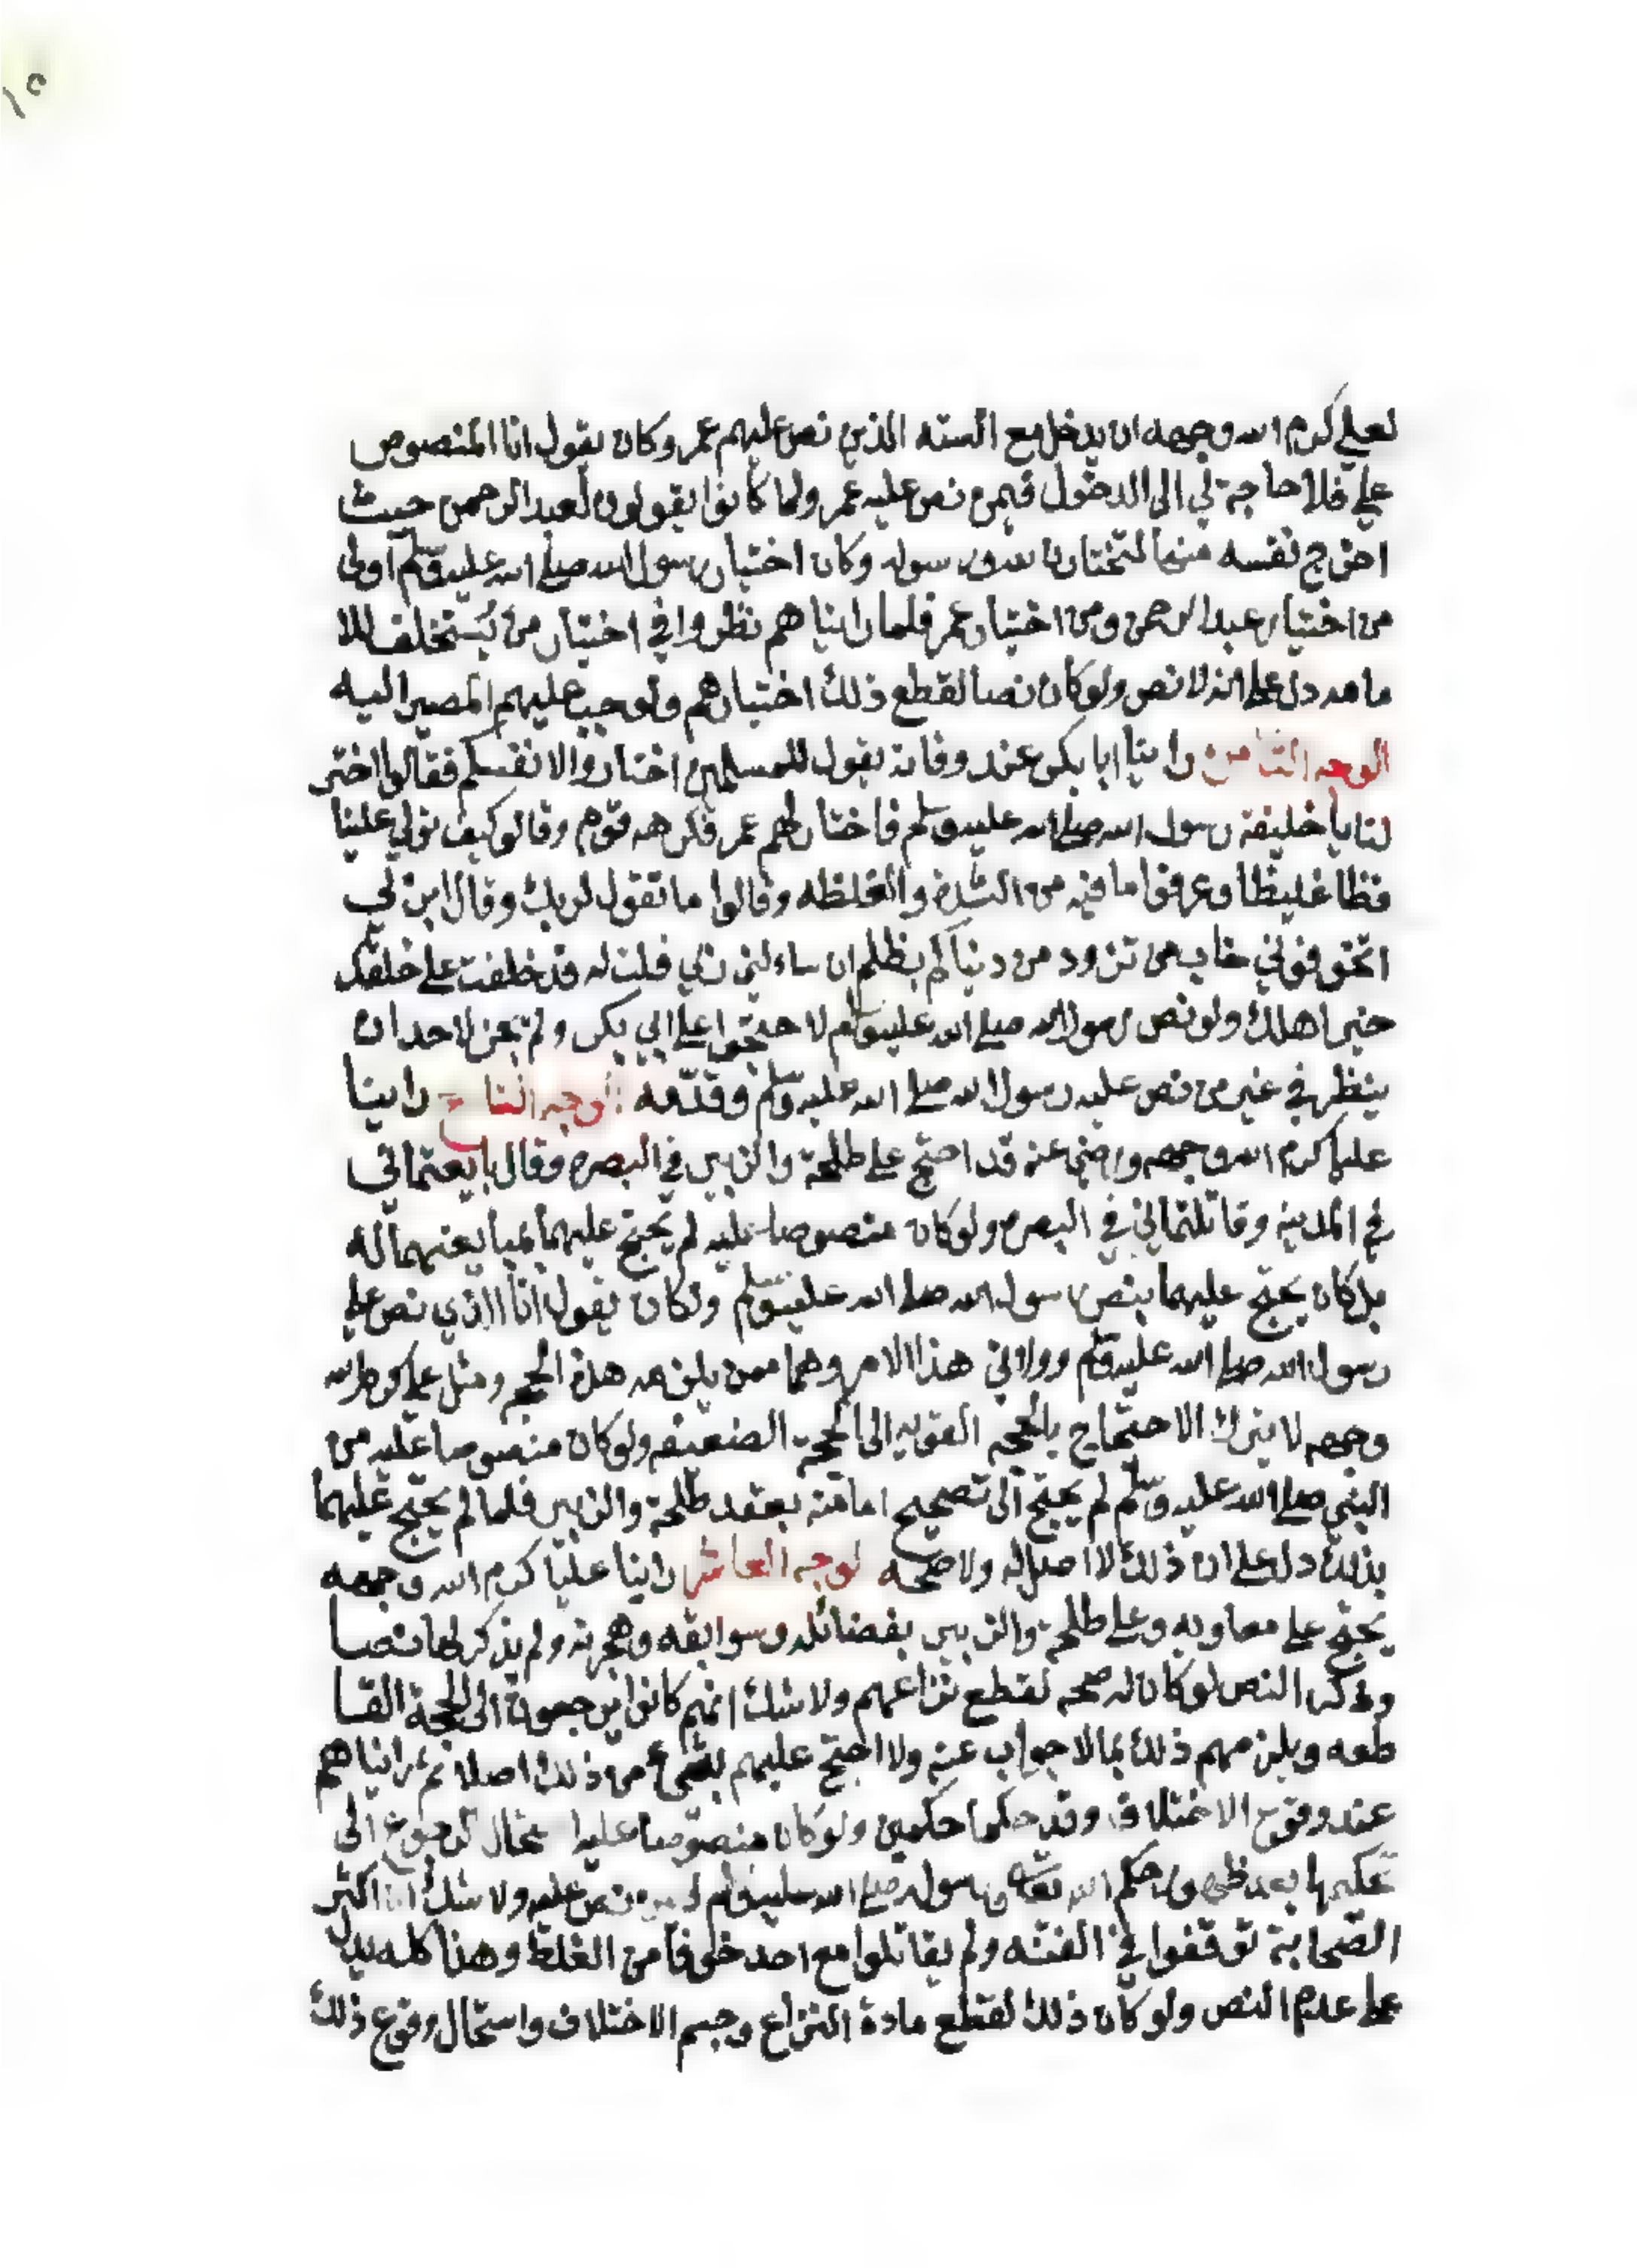 ١٥
لعلي كرم الله وجهه ان يدخل مع الستة الذين نص عليهم عمر وكان يقول انا المنصوص
علي فلا حاجة لي الى الدخول فيمن نص عليه عمر ولما كانوا يقولون لعبد الرحمن حيث
اخرج نفسه منها لتختار لنا لله ورسوله وكان اختيار رسول الله صلى الله عليه وسلم اولى
من اختيار عبد الرحمن ومن اختيار عمر فلما راينا هم نظروا في اختيار من يستخلف للا
مامه دل على انه لا نص ولو كان نصا لقطع ذلك اختيارهم ولوجب عليهم المصير اليه
الوجه الثامن راينا ابا بكر عند وفاته يقول للمسلمين اختاروا لانفسكم فقالوا اختر
لنا يا خليفة رسول الله صلى الله عليه وسلم فاختار لهم عمر فكرهه قوم وقالو كيف تولي علينا
فظا غليظا وعرفوا ما فيه من الشدة والغلظه وقالوا ما تقول لربك وقال
خاب من تزود من دنياكم بظلم ان ساءلني ربي قلت له قد خلفت على خلقك
خير اهلك ولو نص رسول الله صلى الله عليه وسلم لاحتجوا على ابي بكر ولم يجز لاحد ان
ينظر في غير من نص عليه رسول الله صلى الله عليه وسلم وقدمه الوجه التاسع راينا
عليا كرم الله وجهه ورضي عنه قد احتج على طلحة والزبير في البصره وقال بايعتماني
في المدينه وقاتلتماني في البصره ولو كان منصوصا عليه لم يحتج عليهما بمبايعتهما له
بل كان يحتج عليهما بنص رسول الله صلى الله عليه وسلم ولكان يقول انا الذي نص علي
رسول الله صلى الله عليه وسلم وولاني هذا الامر وهما ممن يلزمه هذه الحجه ومثل علي كرم الله
وجهه لا يترك الاحتجاج بالحجه القويه الى الحجة الضعيفه ولو كان منصوصا عليه من
النبي صلى الله عليه وسلم لم يحتج الى تصحيح امامته بعقد طلحة والزبير فلما لم يحتج عليهما
بذلك دل على ان ذلك لا اصل له ولا صحه لوجه العاشر راينا عليا كرم الله وجهه
يحتج على معاويه وعلى طلحة والزبير بفضائله وسوابقه وهجرته ولم يذكر لها نصا
وذكر النص لو كان له صحه لقطع نزاعهم ولا شك انهم كانوا يرجعون الى الحجة القا
طعه ويلزمهم ذلك بما لا جواب عنه ولا احتج عليهم بشيء من ذلك اصلا ثم راينا هم
عند وقوع الاختلاف وقد حكما حكمين ولو كان منصوصا عليه محال الرجوع الى
حكمها بعد ظهور حكم الله تعالى ورسوله صلى الله عليه وسلم نص عليه ولا شك ان اكثر
الصحابة توقفوا في الفتنه ولم يقاتلوا مع احد خوفا من الغلط وهذا كله يدل
على عدم النص ولو كان ذلك لقطع مادة النزاع وحسم الاختلاف واستحال وقوع ذلك